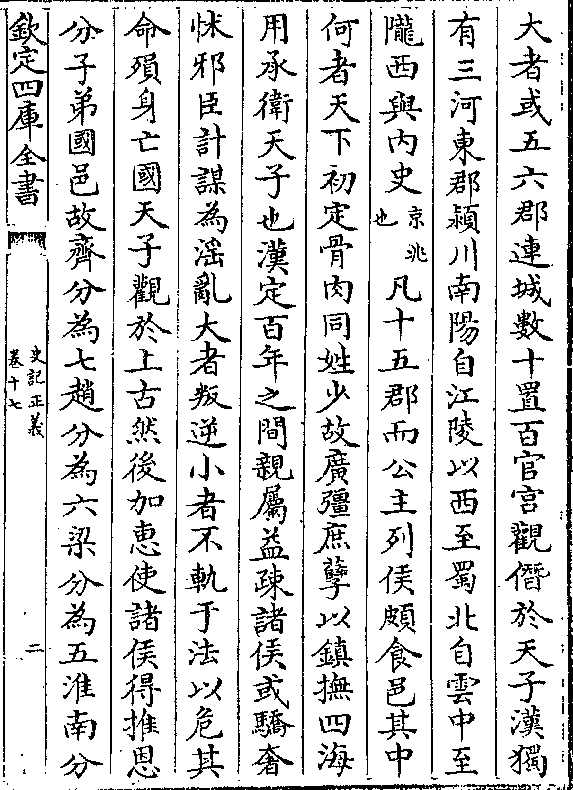 大者或五六郡連城數十置百官宮觀僭於天子漢獨
有三河東郡潁川南陽自江陵以西至蜀北自雲中至
隴西與内史京兆也凡十五郡而公主列侯頗食邑其中
何者天下初定骨肉同姓少故廣彊庶孽以鎮撫四海
用承衛天子也漢定百年之間親屬益疎諸侯或驕奢
怵邪臣計謀為淫亂大者叛逆小者不軌于法以危其
命殞身亡國天子觀於上古然後加恵使諸侯得推恩
分子弟國邑故齊分為七趙分為六梁分為五淮南分
欽定四庫全書
史記正義
卷十七
二